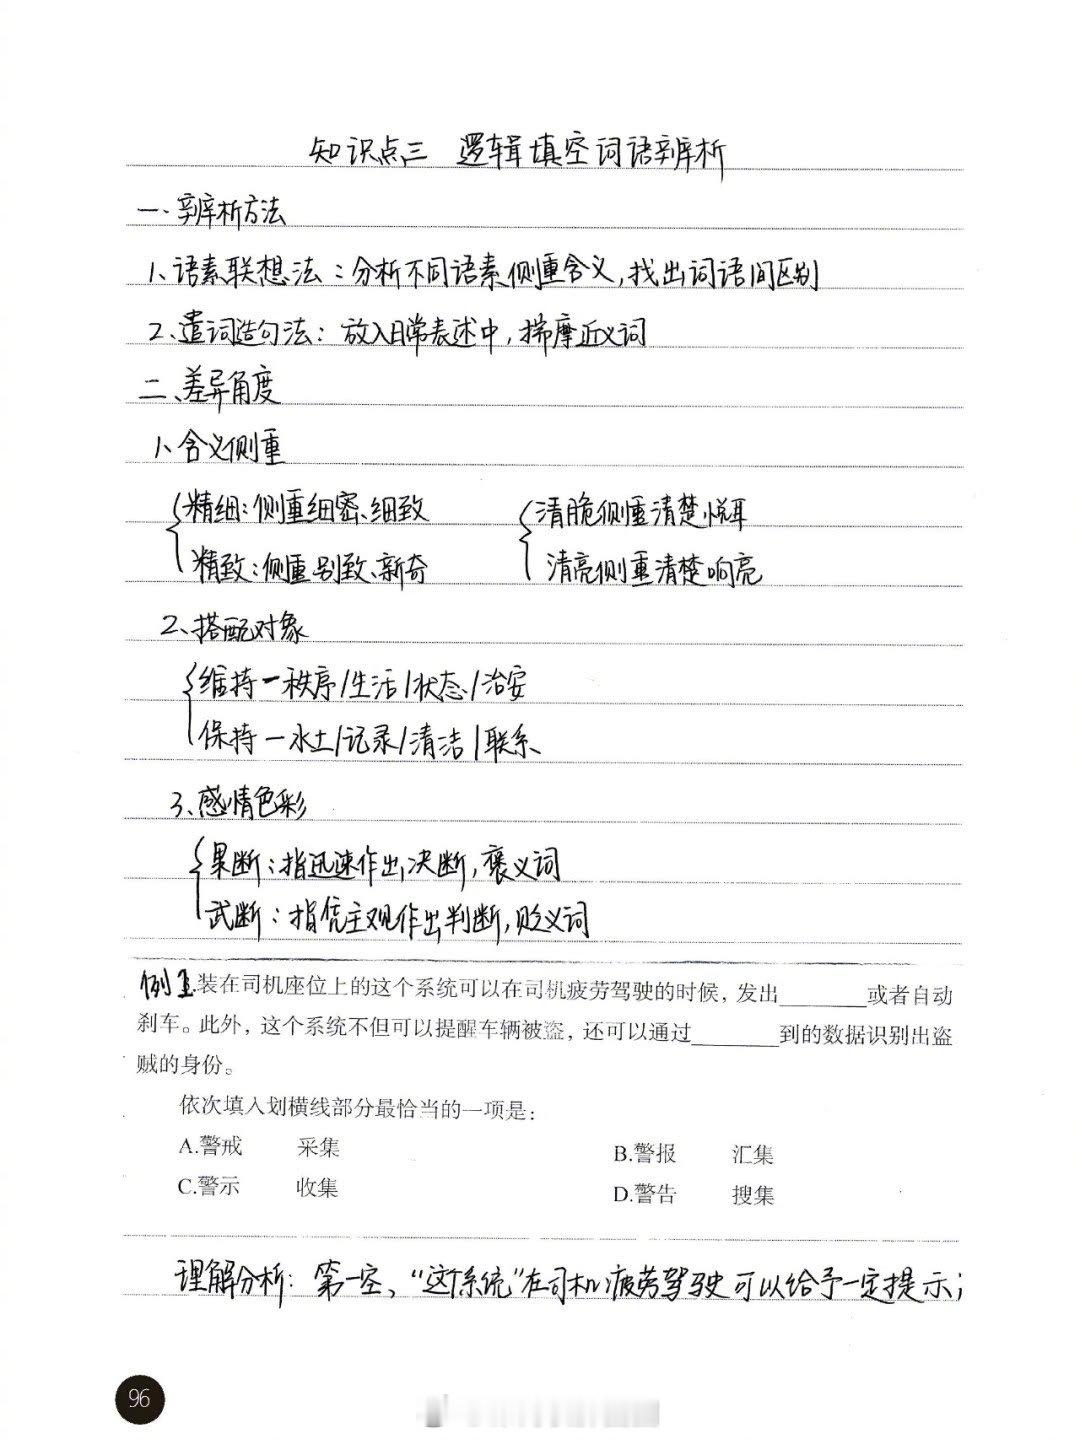 知识点三 逻辑填空词语辨析
一、辨析方法
1、语素联想法：分析不同语素侧重含义，找出词语间区别
2、遣词造句法：放入日常表述中，揣摩近义词
二、差异角度
1、含义侧重
精细：侧重细密、细致
精致：侧重别致、新奇
清脆侧重清楚悦耳
清亮侧重清楚响亮
2、搭配对象
维持—秩序/生活/状态/治安
保持—水土/记录/清洁/联系
3、感情色彩
果断：指迅速作出决断，褒义词
武断：指凭主观作出判断，贬义词
例1.装在司机座位上的这个系统可以在司机疲劳驾驶的时候，发出________或者自动
刹车。此外，这个系统不但可以提醒车辆被盗，还可以通过________到的数据识别出盗
贼的身份。
依次填入划横线部分最恰当的一项是：
A.警戒 采集 B.警报 汇集
C.警示 收集 D.警告 搜集
理解分析：第一空，“这个系统”在司机疲劳驾驶可以给予一定提示；
96